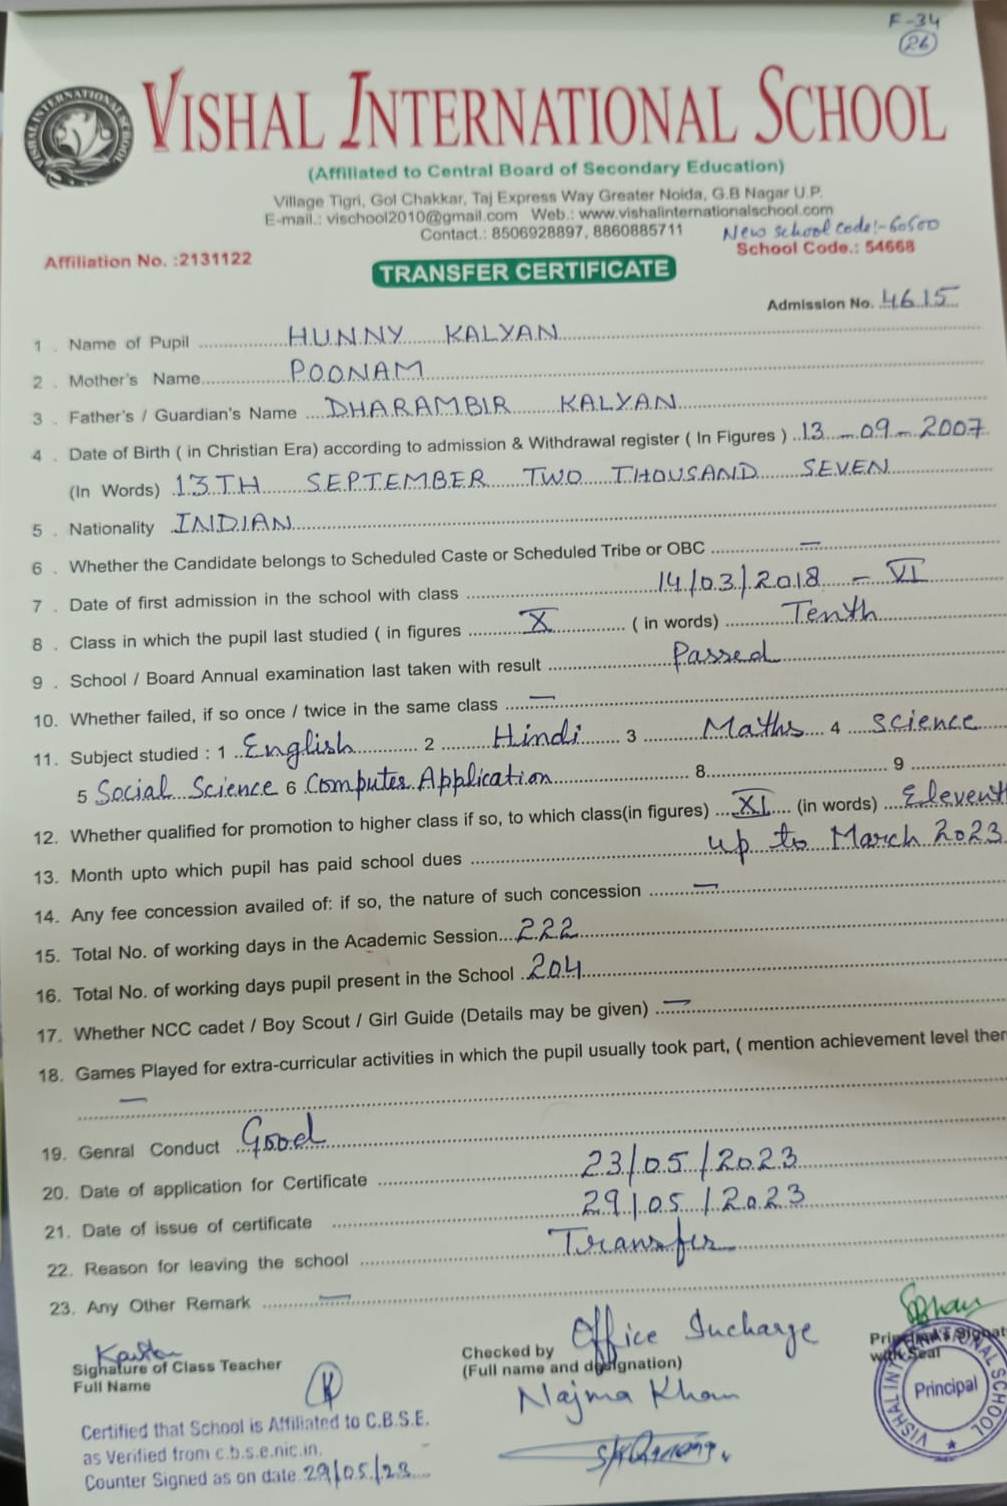 F-34
26
VISHAL INTERNATIONAL SCHOOL
(Affiliated to Central Board of Secondary Education)
Village Tigri, Gol Chakkar, Taj Express Way Greater Noida, G.B Nagar U.P.
E-mail.: vischool2010@gmail.com Web.: www.vishalinternationalschool.com
Contact.: 8506928897, 8860885711
New school code:-60500
Affiliation No. :2131122
School Code.: 54668
TRANSFER CERTIFICATE
Admission No. 4615
1 . Name of Pupil HUNNY KALYAN
2 . Mother's Name POONAM
3 . Father's / Guardian's Name DHARAMBIR KALYAN
4 . Date of Birth ( in Christian Era) according to admission & Withdrawal register ( In Figures ) 13-09-2007
(In Words) 13TH SEPTEMBER TWO THOUSAND SEVEN
5 . Nationality INDIAN
6 . Whether the Candidate belongs to Scheduled Caste or Scheduled Tribe or OBC —
7 . Date of first admission in the school with class 14/03/2018 - VI
8 . Class in which the pupil last studied ( in figures X ( in words) Tenth
9 . School / Board Annual examination last taken with result Passed
10. Whether failed, if so once / twice in the same class —
11. Subject studied : 1 English 2 Hindi 3 Maths 4 Science
5 Social Science 6 Computer Application 8 9
12. Whether qualified for promotion to higher class if so, to which class(in figures) XI (in words) Eleventh
13. Month upto which pupil has paid school dues up to March 2023
14. Any fee concession availed of: if so, the nature of such concession —
15. Total No. of working days in the Academic Session 222
16. Total No. of working days pupil present in the School 204
17. Whether NCC cadet / Boy Scout / Girl Guide (Details may be given) —
18. Games Played for extra-curricular activities in which the pupil usually took part, ( mention achievement level ther
—
19. Genral Conduct Good
20. Date of application for Certificate 23/05/2023
21. Date of issue of certificate 29/05/2023
22. Reason for leaving the school Transfer
23. Any Other Remark —
Signature of Class Teacher
Full Name
Checked by Office Incharge
(Full name and designation)
Najma Khan
Principal's Signat
with Seal
VISHAL INTERNATIONAL SCHOOL
Principal
Certified that School is Affiliated to C.B.S.E.
as Verified from c.b.s.e.nic.in.
Counter Signed as on date 29/05/23